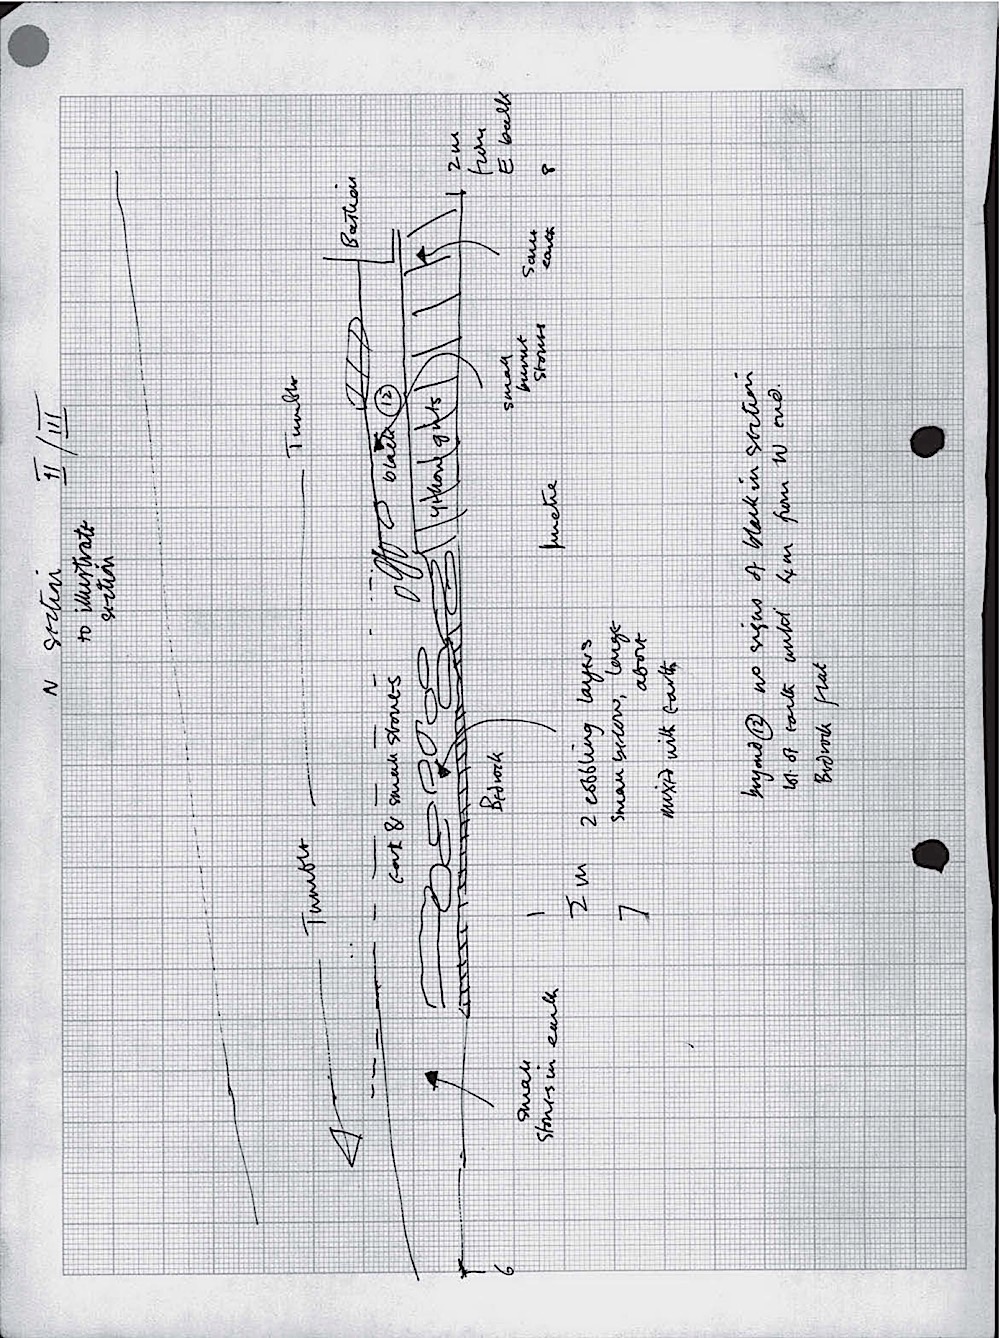 N section II/III
to illustrate
section
Tumble
Tumble
Bastion
black (12)
uprights
small stones
2 m
from
E balk
8
some
earth
small
burnt
stones
Bedrock
small
stones in earth
6
1
2 m
7
2 cobbling layers
small below, large
above
mixed with earth
beyond (12) no signs of black in section
lot of earth until 4m from W end.
Bedrock flat